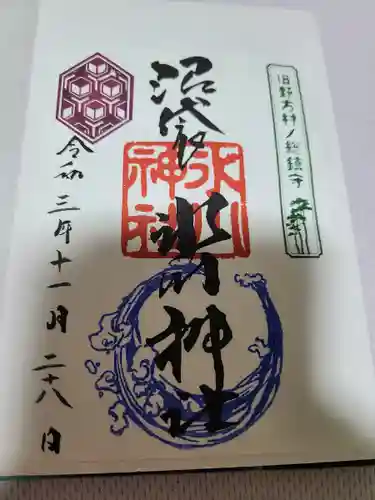 旧野方村ノ総鎮守
沼袋氷川神社
氷川神社
令和三年十一月二八日